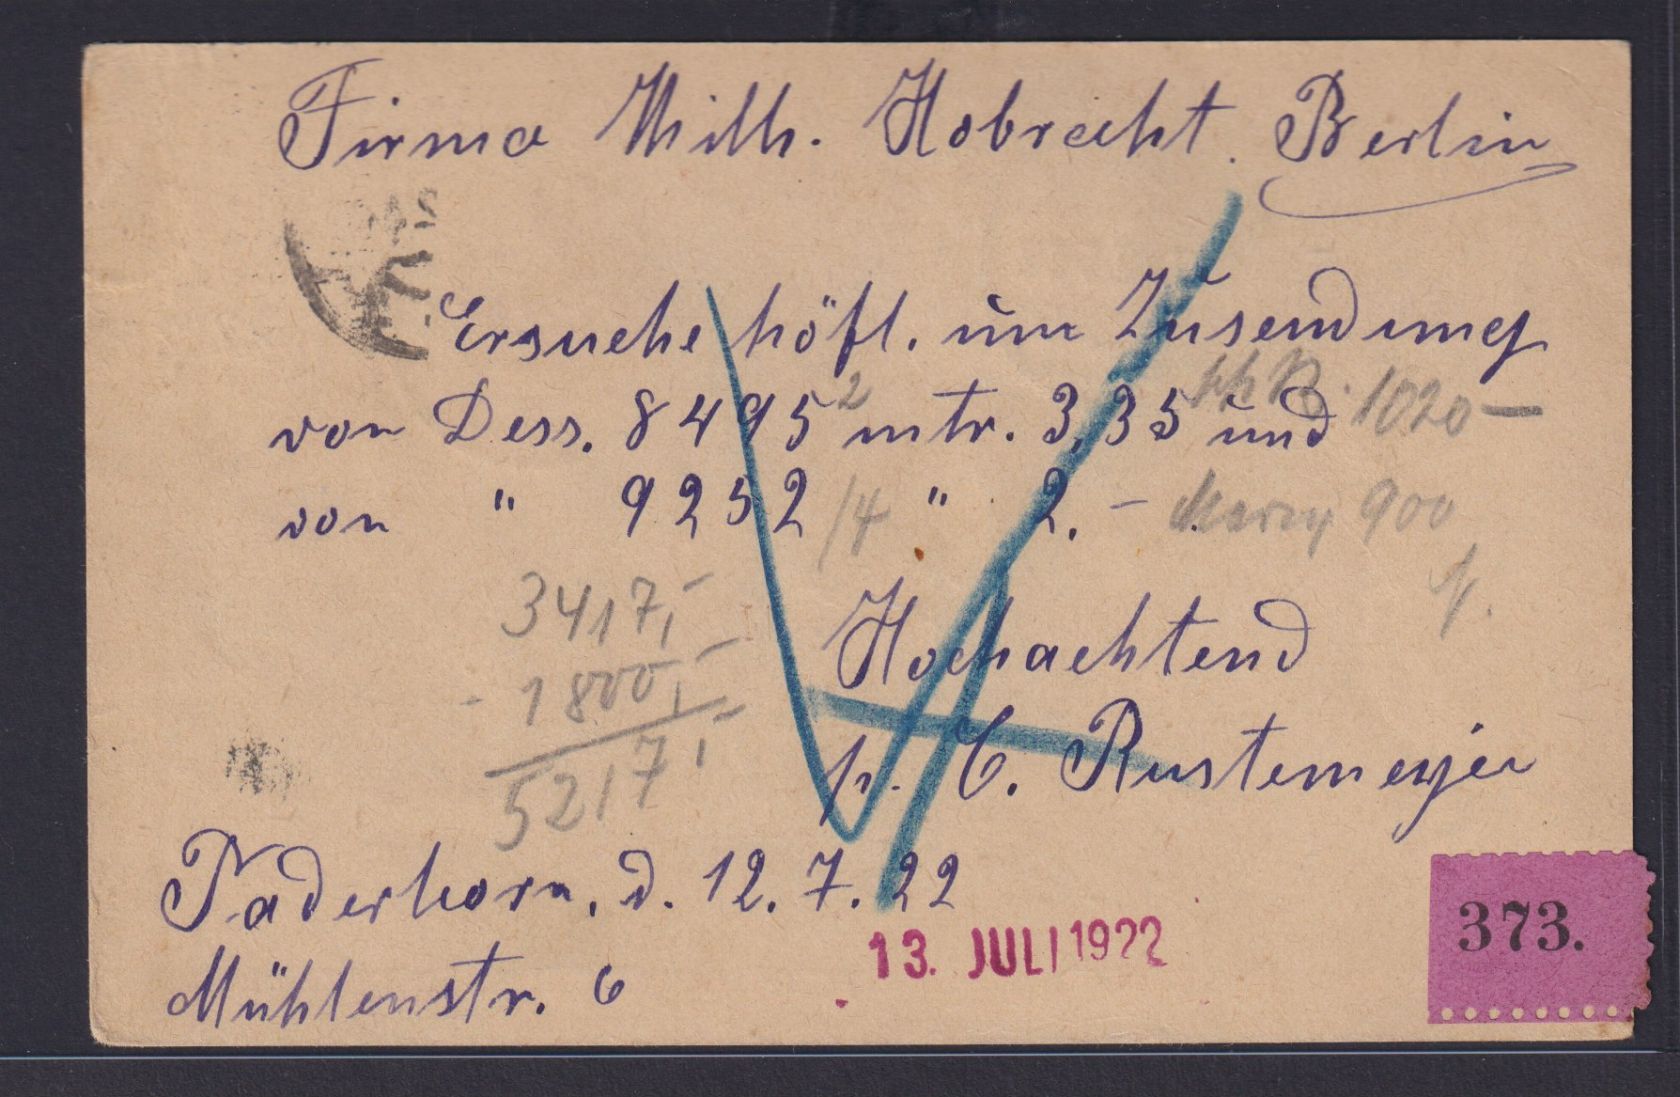 Firma Wilh. Hobrecht. Berlin
Ersuche höfl. um Zusendung
von Dess. 8495 2 mtr. 3,35 und 1020 —
von " 9252 /4 " 2. — 900
3417,-
1800,-
5217,-
Hochachtend
C. Rustemeyer
Paderborn, d. 12. 7. 22
Mühlenstr. 6
13. JULI 1922
373.